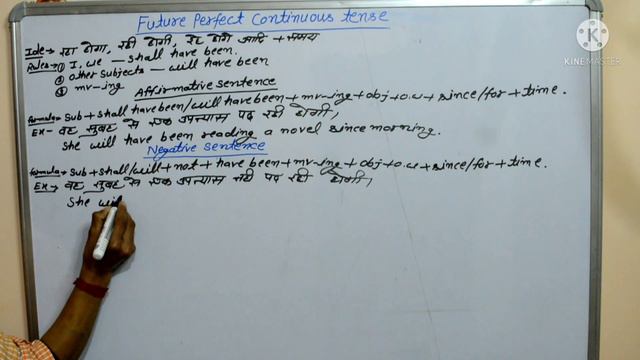 Future Perfect Continuous tense
Ide→ रहा होगा, रही होगी, रहे होंगे आदि + समय
Rules→ ① I, we — shall have been.
② other subjects — will have been
③ mv-ing
Affirmative Sentence
formula→ Sub + shall have been/will have been + mv-ing + obj + o.w + since/for + time.
Ex→ वह सुबह से एक उपन्यास पढ़ रही होगी।
She will have been reading a novel since morning.
Negative Sentence
formula→ Sub + shall/will + not + have been + mv-ing + obj + o.w + since/for + time.
Ex→ वह सुबह से एक उपन्यास नहीं पढ़ रही होगी।
She wil
KINEMASTER